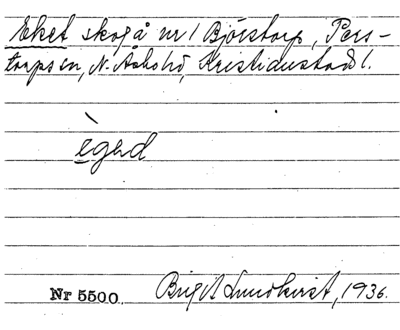 Eket skog å nr 1 Björstorp, Pers-
torps sn, N. Åsbo hd, Kristianstads l.
ègəd
Nr 5500 Birgit Lundkvist, 1936.